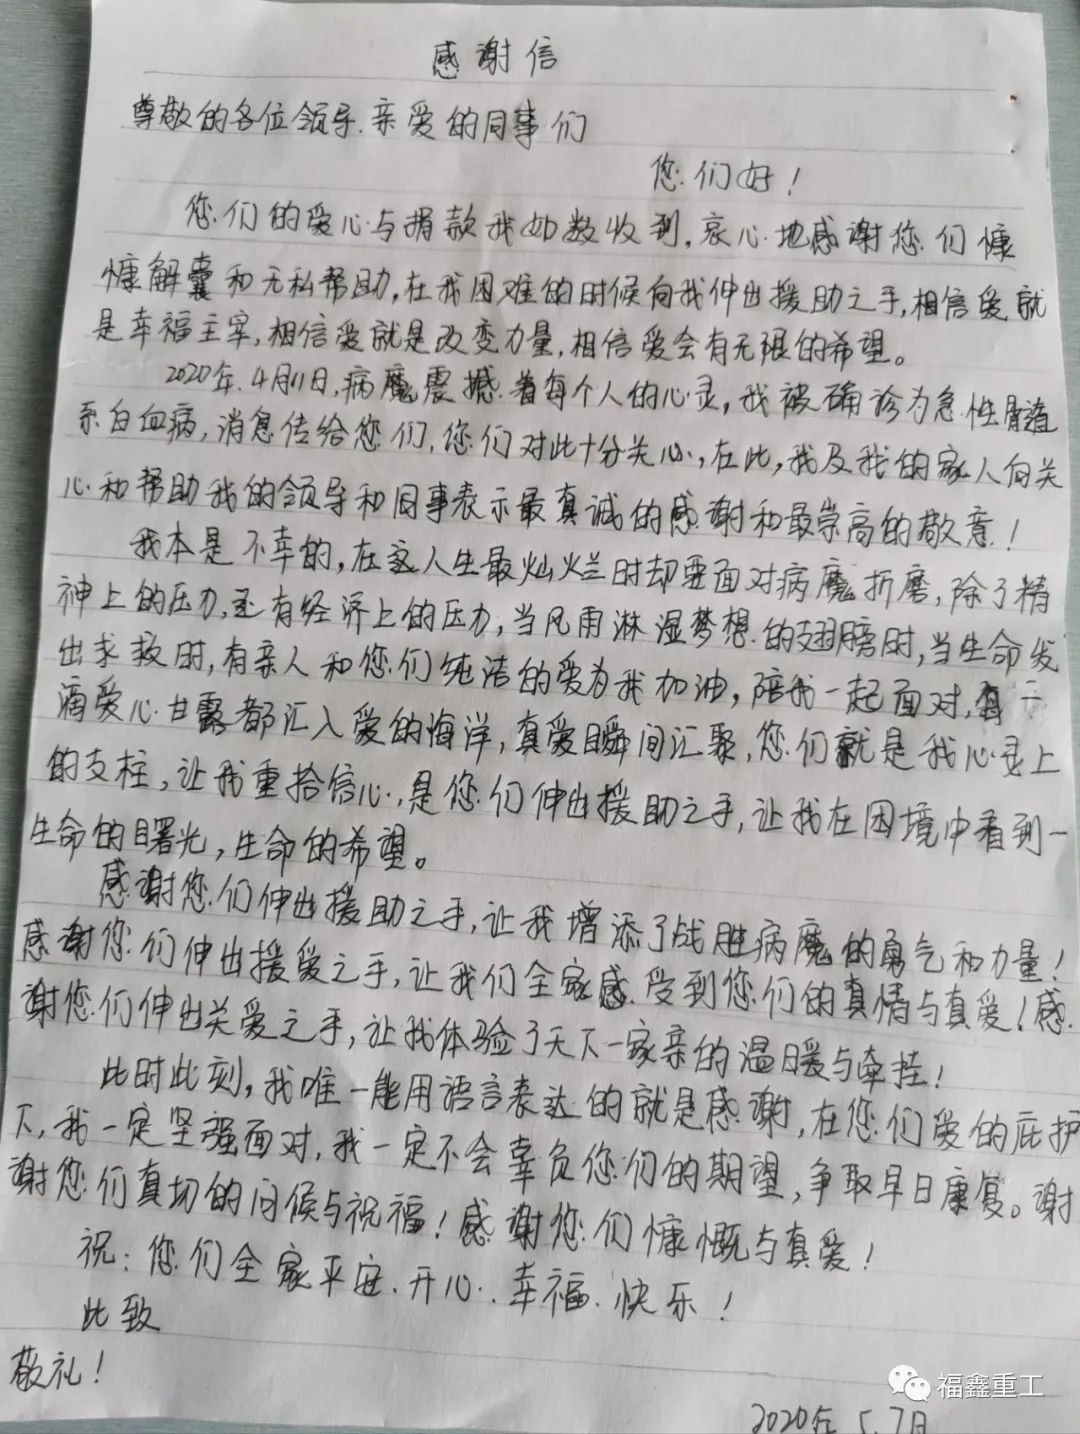 感谢信
尊敬的各位领导.亲爱的同事们
您们好!
您们的爱心与捐款我如数收到,衷心地感谢您们慷
慷解囊和无私帮助,在我困难的时候向我伸出援助之手,相信爱就
是幸福主宰,相信爱就是改变力量,相信爱会有无限的希望。
2020年.4月11日,病魔震撼着每个人的心灵,我被确诊为急性骨髓
系白血病,消息传给您们,您们对此十分关心,在此,我及我的家人向关
心和帮助我的领导和同事表示最真诚的感谢和最崇高的敬意!
我本是不幸的,在这人生最灿烂时却要面对病魔折磨,除了精
神上的压力,还有经济上的压力,当风雨淋湿梦想的翅膀时,当生命发
出求救时,有亲人和您们纯洁的爱为我加油,陪我一起面对,每一
滴爱心甘露都汇入爱的海洋,真爱瞬间汇聚,您们就是我心灵上
的支柱,让我重拾信心,是您们伸出援助之手,让我在困境中看到一
生命的曙光,生命的希望。
感谢您们伸出援助之手,让我增添了战胜病魔的勇气和力量!
感谢您们伸出援爱之手,让我们全家感受到您们的真情与真爱!感
谢您们伸出关爱之手,让我体验了天下一家亲的温暖与牵挂!
此时此刻,我唯一能用语言表达的就是感谢,在您们爱的庇护
下,我一定坚强面对,我一定不会辜负您们的期望,争取早日康复。谢
谢您们真切的问候与祝福!感谢您们慷慨与真爱!
祝:您们全家平安.开心.幸福.快乐!
此致
敬礼!
2020年5.7日
福鑫重工